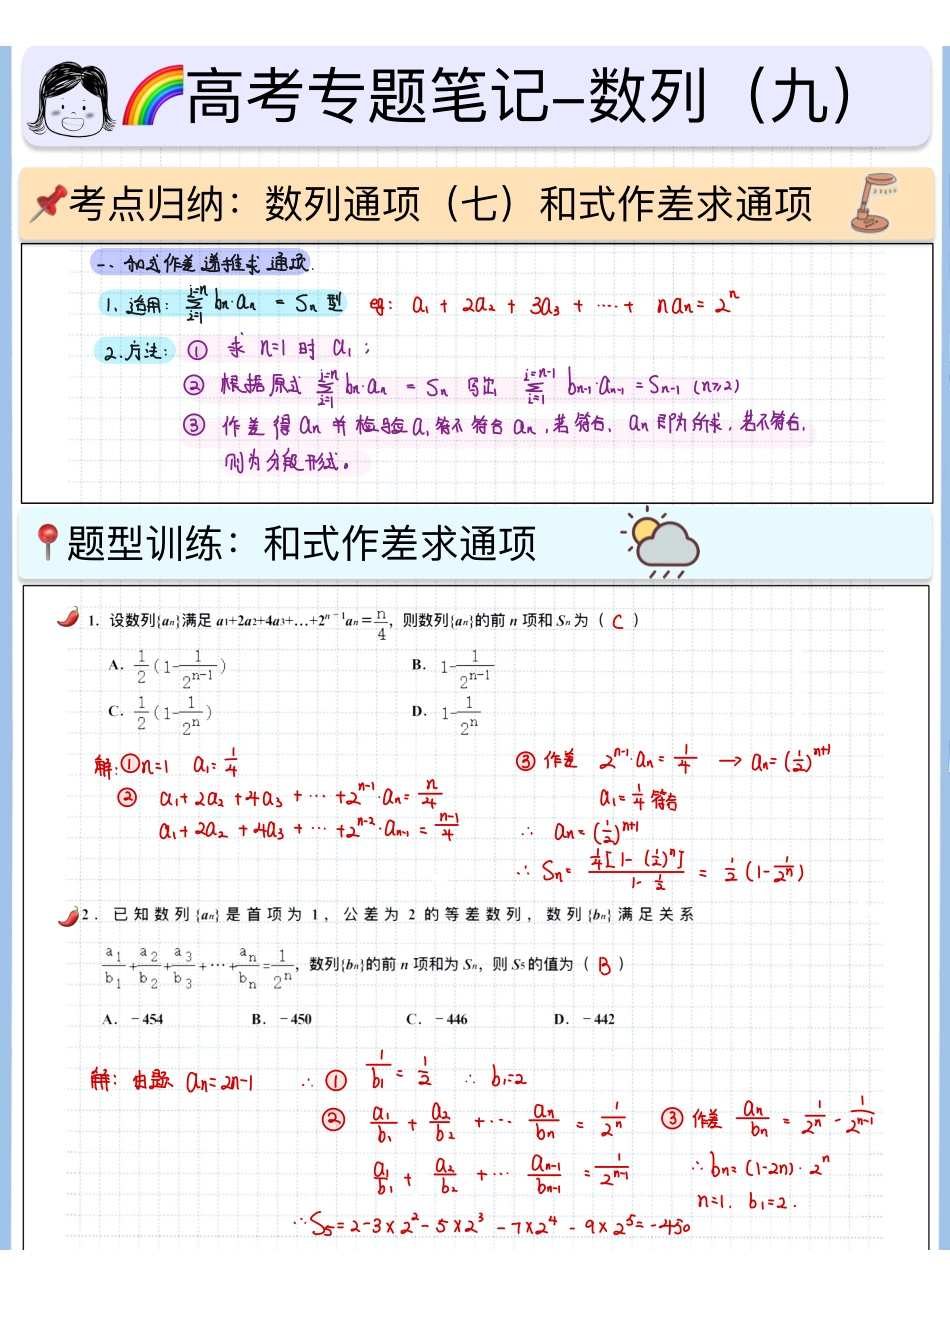 高考专题笔记–数列（九）
考点归纳：数列通项（七）和式作差求通项
一、和式作差递推求通项.
1、适用： \sum_{i=1}^{i=n} bn·an = Sn 型 eg: a₁ + 2a₂ + 3a₃ + ···· + nan = 2ⁿ
2.方法：① 求 n=1 时 a₁；
② 根据原式 \sum_{i=1}^{i=n} bn·an = Sn 写出 \sum_{i=1}^{i=n-1} bn-1·an-1 = Sn-1 (n≥2)
③ 作差得 an 并检验 a₁ 符不符合 an，若符合、an 即为所求，若不符合，
则为分段形式。
题型训练：和式作差求通项
1．设数列{an}满足 a1+2a2+4a3+…+2ⁿ⁻¹an＝n/4，则数列{an}的前 n 项和 Sn 为（ C ）
A．1/2(1-1/2ⁿ⁻¹) B．1-1/2ⁿ⁻¹
C．1/2(1-1/2ⁿ) D．1-1/2ⁿ
解：①n=1 a₁=1/4 ③ 作差 2ⁿ⁻¹·an=1/4 → an=(1/2)ⁿ⁺¹
② a₁+2a₂+4a₃+···+2ⁿ⁻¹·an=n/4 a₁=1/4 符合
a₁+2a₂+4a₃+···+2ⁿ⁻²·an-1=(n-1)/4 ∴ an=(1/2)ⁿ⁺¹
∴ Sn=1/4[1-(1/2)ⁿ]/(1-1/2) = 1/2(1-1/2ⁿ)
2．已知数列{an}是首项为 1，公差为 2 的等差数列，数列{bn}满足关系
a₁/b₁+a₂/b₂+a₃/b₃+…+an/bn=1/2ⁿ，数列{bn}的前 n 项和为 Sn，则 S5 的值为（ B ）
A．－454 B．－450 C．－446 D．－442
解：由题 an=2n-1 ∴ ① 1/b₁=1/2 ∴ b₁=2
② a₁/b₁+a₂/b₂+···an/bn=1/2ⁿ ③ 作差 an/bn=1/2ⁿ-1/2ⁿ⁻¹
a₁/b₁+a₂/b₂+···an-1/bn-1=1/2ⁿ⁻¹ ∴bn=(1-2n)·2ⁿ
n=1. b₁=2.
∴S₅=2-3×2²-5×2³-7×2⁴-9×2⁵=-450